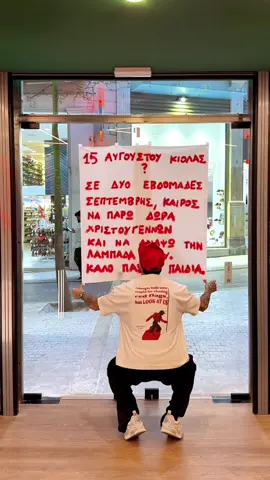 15 ΑΥΓΟΥΣΤΟΥ ΚΙΟΛΑΣ
?
ΣΕ ΔΥΟ ΕΒΔΟΜΑΔΕΣ
ΣΕΠΤΕΜΒΡΗΣ, ΚΑΙΡΟΣ
ΝΑ ΠΑΡΩ ΔΩΡΑ
ΧΡΙΣΤΟΥΓΕΝΝΩΝ
ΚΑΙ ΝΑ ΑΝΑΨΩ ΤΗΝ
ΛΑΜΠΑΔΑ
ΚΑΛΟ ΠΑΣΧΑ ΠΑΙΔΙΑ.
red flags,
but LOOK AT